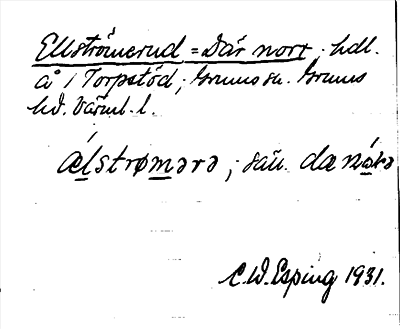 Ellströmerud = Där norr. hdl.
å i Torpstöd, Grums sn. Grums
hd. Värml. l.
ælstrømərə, sän. da
C.W. Esping 1931.